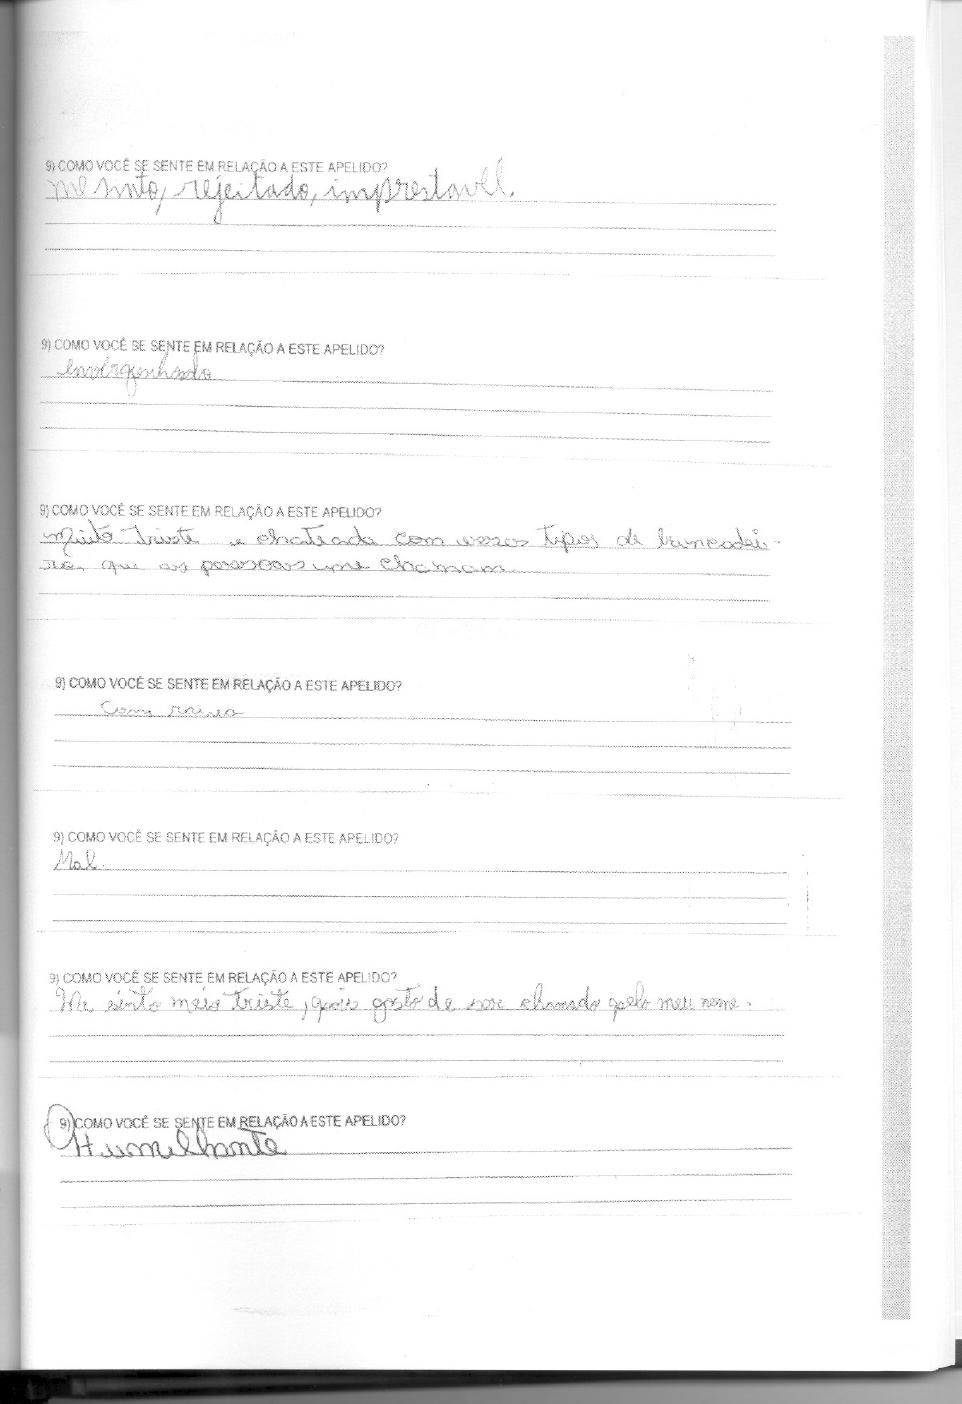 9) COMO VOCÊ SE SENTE EM RELAÇÃO A ESTE APELIDO?
me sinto, rejeitado, imprestavél.
9) COMO VOCÊ SE SENTE EM RELAÇÃO A ESTE APELIDO?
envergonhado
9) COMO VOCÊ SE SENTE EM RELAÇÃO A ESTE APELIDO?
muito triste e chateada com esses tipos de brincadei-
ra, que as pessoas me chamam.
9) COMO VOCÊ SE SENTE EM RELAÇÃO A ESTE APELIDO?
Com raiva
9) COMO VOCÊ SE SENTE EM RELAÇÃO A ESTE APELIDO?
Mal.
9) COMO VOCÊ SE SENTE EM RELAÇÃO A ESTE APELIDO?
Me sinto meio triste, pois gosto de ser chamado pelo meu nome.
9) COMO VOCÊ SE SENTE EM RELAÇÃO A ESTE APELIDO?
Humilhante